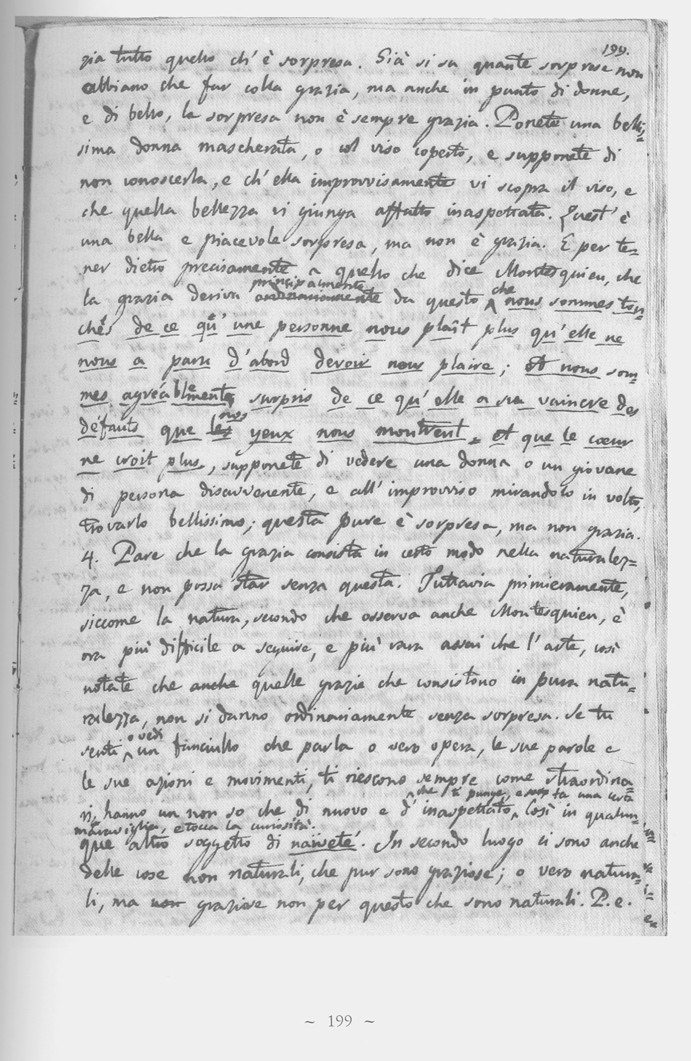 199.
zia tutto quello ch'è sorpresa. Già si sa quante sorprese non
abbiano che far colla grazia, ma anche in punto di donne,
e di bello, la sorpresa non è sempre grazia. Ponete una bellis-
sima donna mascherata, o col viso coperto, e supponete di
non conoscerla, e ch'ella improvvisamente vi scopra il viso, e
che quella bellezza vi giunga affatto inaspettata. Quest'è
una bella e piacevole sorpresa, ma non è grazia. E per te-
ner dietro precisamente a quello che dice Montesquieu, che
la grazia deriva principalmente da questo che nous sommes tou-
chés de ce qu'une personne nous plaît plus qu'elle ne
nous a paru d'abord devoir nous plaire; et nous som-
mes agréablement surpris de ce qu'elle a su vaincre des
défauts que nos yeux nous montrent, et que le cœur
ne croit plus, supponete di vedere una donna o un giovane
di persona disavvenente, e all'improvviso mirandolo in volto,
trovarlo bellissimo; questa pure è sorpresa, ma non grazia.
4. Pare che la grazia consista in certo modo nella naturalez-
za, e non possa star senza questa. Tuttavia primieramente,
siccome la natura, secondo che osserva anche Montesquieu, è
ora più difficile a seguire, e più rara assai che l'arte, così
notate che anche quelle grazie che consistono in pura natu-
ralezza, non si danno ordinariamente senza sorpresa. Se tu
senti o vedi un fanciullo che parla o vero opera, le sue parole e
le sue azioni e movimenti, ti riescono sempre come straordina-
ri, hanno un non so che di nuovo e d'inaspettato che ti punge, e ti fa una certa
maraviglia, e tocca la curiosità. Così in qualun-
que altro soggetto di naïveté. In secondo luogo ci sono anche
delle cose non naturali, che pur sono graziose; o vero natura-
li, ma graziose non per questo che sono naturali. P.e.
~ 199 ~